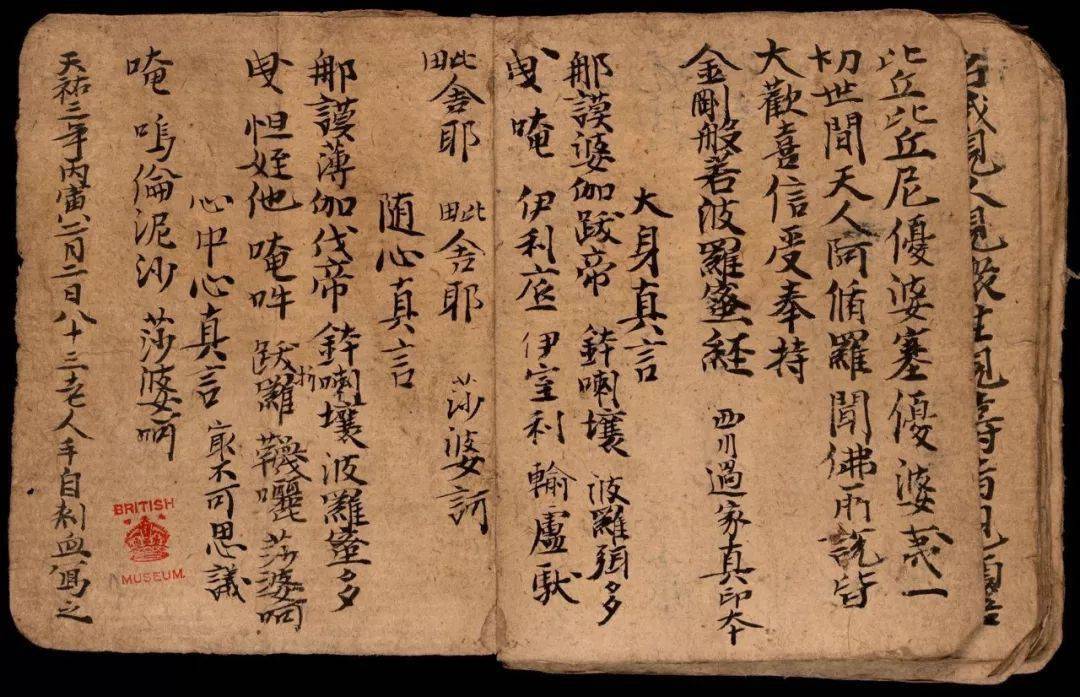 我見人見
比丘比丘尼優婆塞優婆夷一
切世間天人阿脩羅聞佛所說皆
大歡喜信受奉持
金剛般若波羅蜜經 西川過家真印本
大身真言
那謨婆伽跋帝 鉢喇壤 波羅弭多
曳 唵 伊利底 伊室利 輸盧馱
毗舍耶 毗舍耶 莎婆訶
随心真言
那謨薄伽伐帝 鉢喇壤波羅蜜多
曳 怛姪他 唵吽 跋折羅 莎婆呵
心中心真言 㝡不可思議
唵 嗚倫泥沙 莎婆呵
天祐三年丙寅二月二日八十三老人手自刺血寫之
BRITISH
MUSEUM.